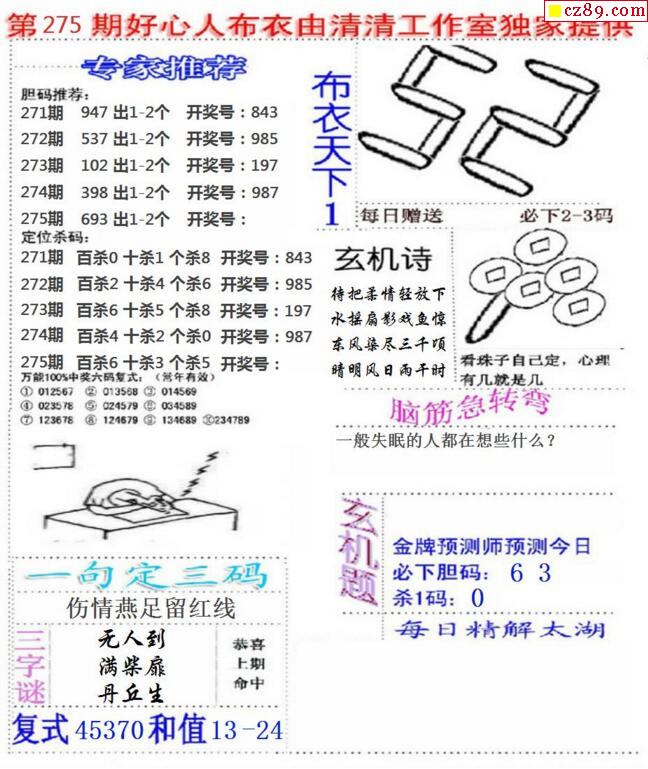 cz89.com
第275期好心人布衣由清清工作室独家提供
专家推荐
胆码推荐:
271期 947出1-2个 开奖号:843
272期 537出1-2个 开奖号:985
273期 102出1-2个 开奖号:197
274期 398出1-2个 开奖号:987
275期 693出1-2个 开奖号:
定位杀码:
271期 百杀0 十杀1 个杀8 开奖号:843
272期 百杀2 十杀4 个杀6 开奖号:985
273期 百杀6 十杀5 个杀8 开奖号:197
274期 百杀4 十杀2 个杀0 开奖号:987
275期 百杀6 十杀3 个杀5 开奖号:
万能100%中奖六码复式:(常年有效)
① 012567 ② 013568 ③ 014569
④ 023578 ⑤ 024579 ⑥ 034589
⑦ 123678 ⑧ 124679 ⑨ 134689 ⑩234789
布衣天下1
52
每日赠送 必下2-3码
玄机诗
待把柔情轻放下
水摇扇影戏鱼惊
东风染尽三千顷
晴明风日雨干时
看珠子自己定,心理
有几就是几
脑筋急转弯
一般失眠的人都在想些什么?
玄机题
金牌预测师预测今日
必下胆码:63
杀1码:0
每日精解太湖
一句定三码
伤情燕足留红线
三字谜
无人到
满柴扉
丹丘生
恭喜
上期
命中
复式45370和值13-24